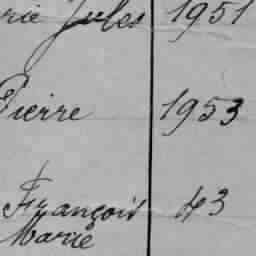 rie Jules 1951
Pierre 1953
François 43
Marie